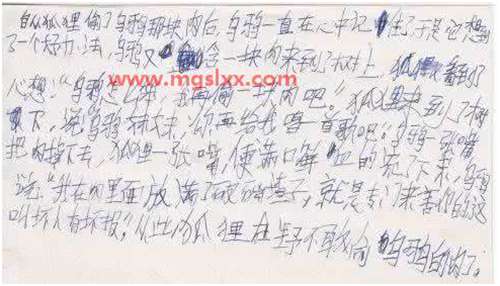 自从狐狸偷了乌鸦那块肉后,乌鸦一直在心中记住了于是它想到
了一个好办法,乌鸦又含一块肉来到了树上 狐狸看到了
www.mgslxx.com
心想:"乌鸦怎么样,我再偷一块肉吧。"狐狸来到了树
下,说:"乌鸦,你再给我唱一首歌吧!"乌鸦一张嘴
把肉掉下去,狐狸一张嘴,便满口鲜血的流了下来,乌鸦
说:"我在肉里面放满了破碎渣子,就是专门来害你的这
叫坏人有坏报,"从此狐狸在也不敢偷乌鸦的肉了。